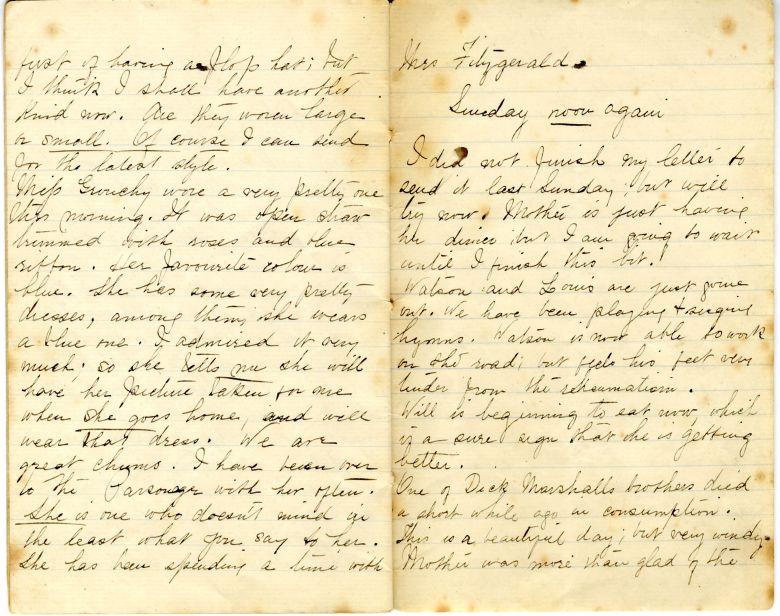 just of having a flop hat; but
I think I shall have another
kind now. Are they worn large
or small. Of course I can send
for the latest style.
Miss Grouchy wore a very pretty one
this morning. It was open straw
trimmed with roses and blue
ribbon. Her favourite colour is
blue. She has some very pretty
dresses, among them, she wears
a blue one. I admired it very
much; so she tells me she will
have her picture taken for me
when she goes home, and will
wear that dress. We are
great chums. I have been over
to the Parsonage with her often.
She is one who doesn't mind in
the least what you say to her.
She has been spending a time with
Mrs Fitzgerald.
Sunday noon again
I did not finish my letter to
send it last Sunday but will
try now. Mother is just having
her dinner but I am going to wait
until I finish this bit.
Watson and Louis are just gone
out. We have been playing & singing
hymns. Watson is now able to work
on the road; but feels his feet very
tender from the rheumatism.
Will is beginning to eat now which
is a sure sign that he is getting
better.
One of Dick Marshalls brothers died
a short while ago in consumption.
This is a beautiful day; but very windy.
Mother was more than glad of the